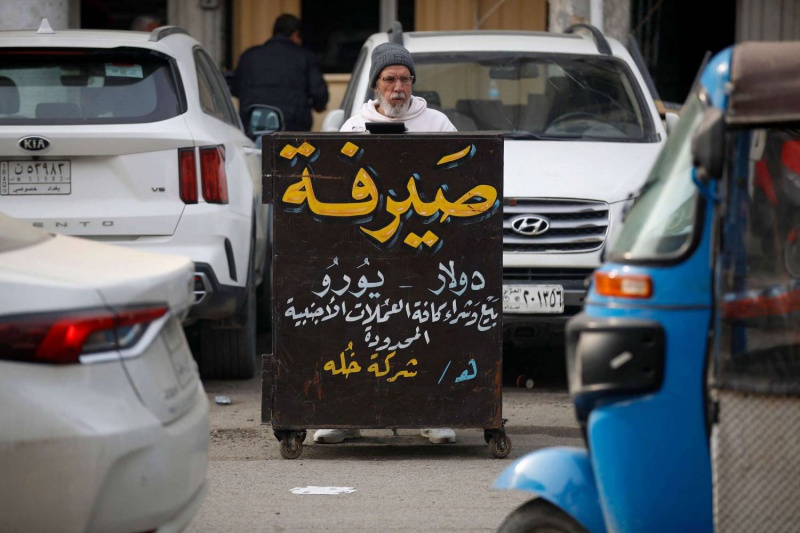 صيرفة
دولار - يورو
بيع وشراء كافة العملات الأجنبية
المحدودة
هـ / شركة خُله
KIA
ن ٥٣٩٨٣
بغداد خصوصي
V6
ENTO